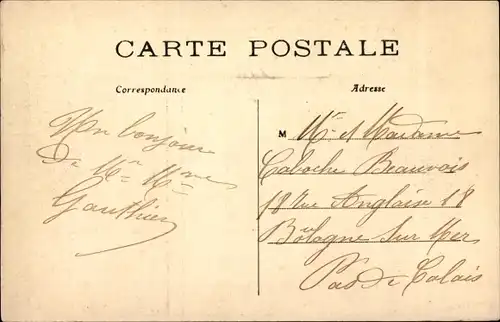 CARTE POSTALE
Correspondance
Adresse
Un bonjour
De Mr Mme
Gauthier
M Mr et Madame
Caboche Beauvois
18 Rue Anglaise 18
Boulogne Sur Mer
Pas De Calais